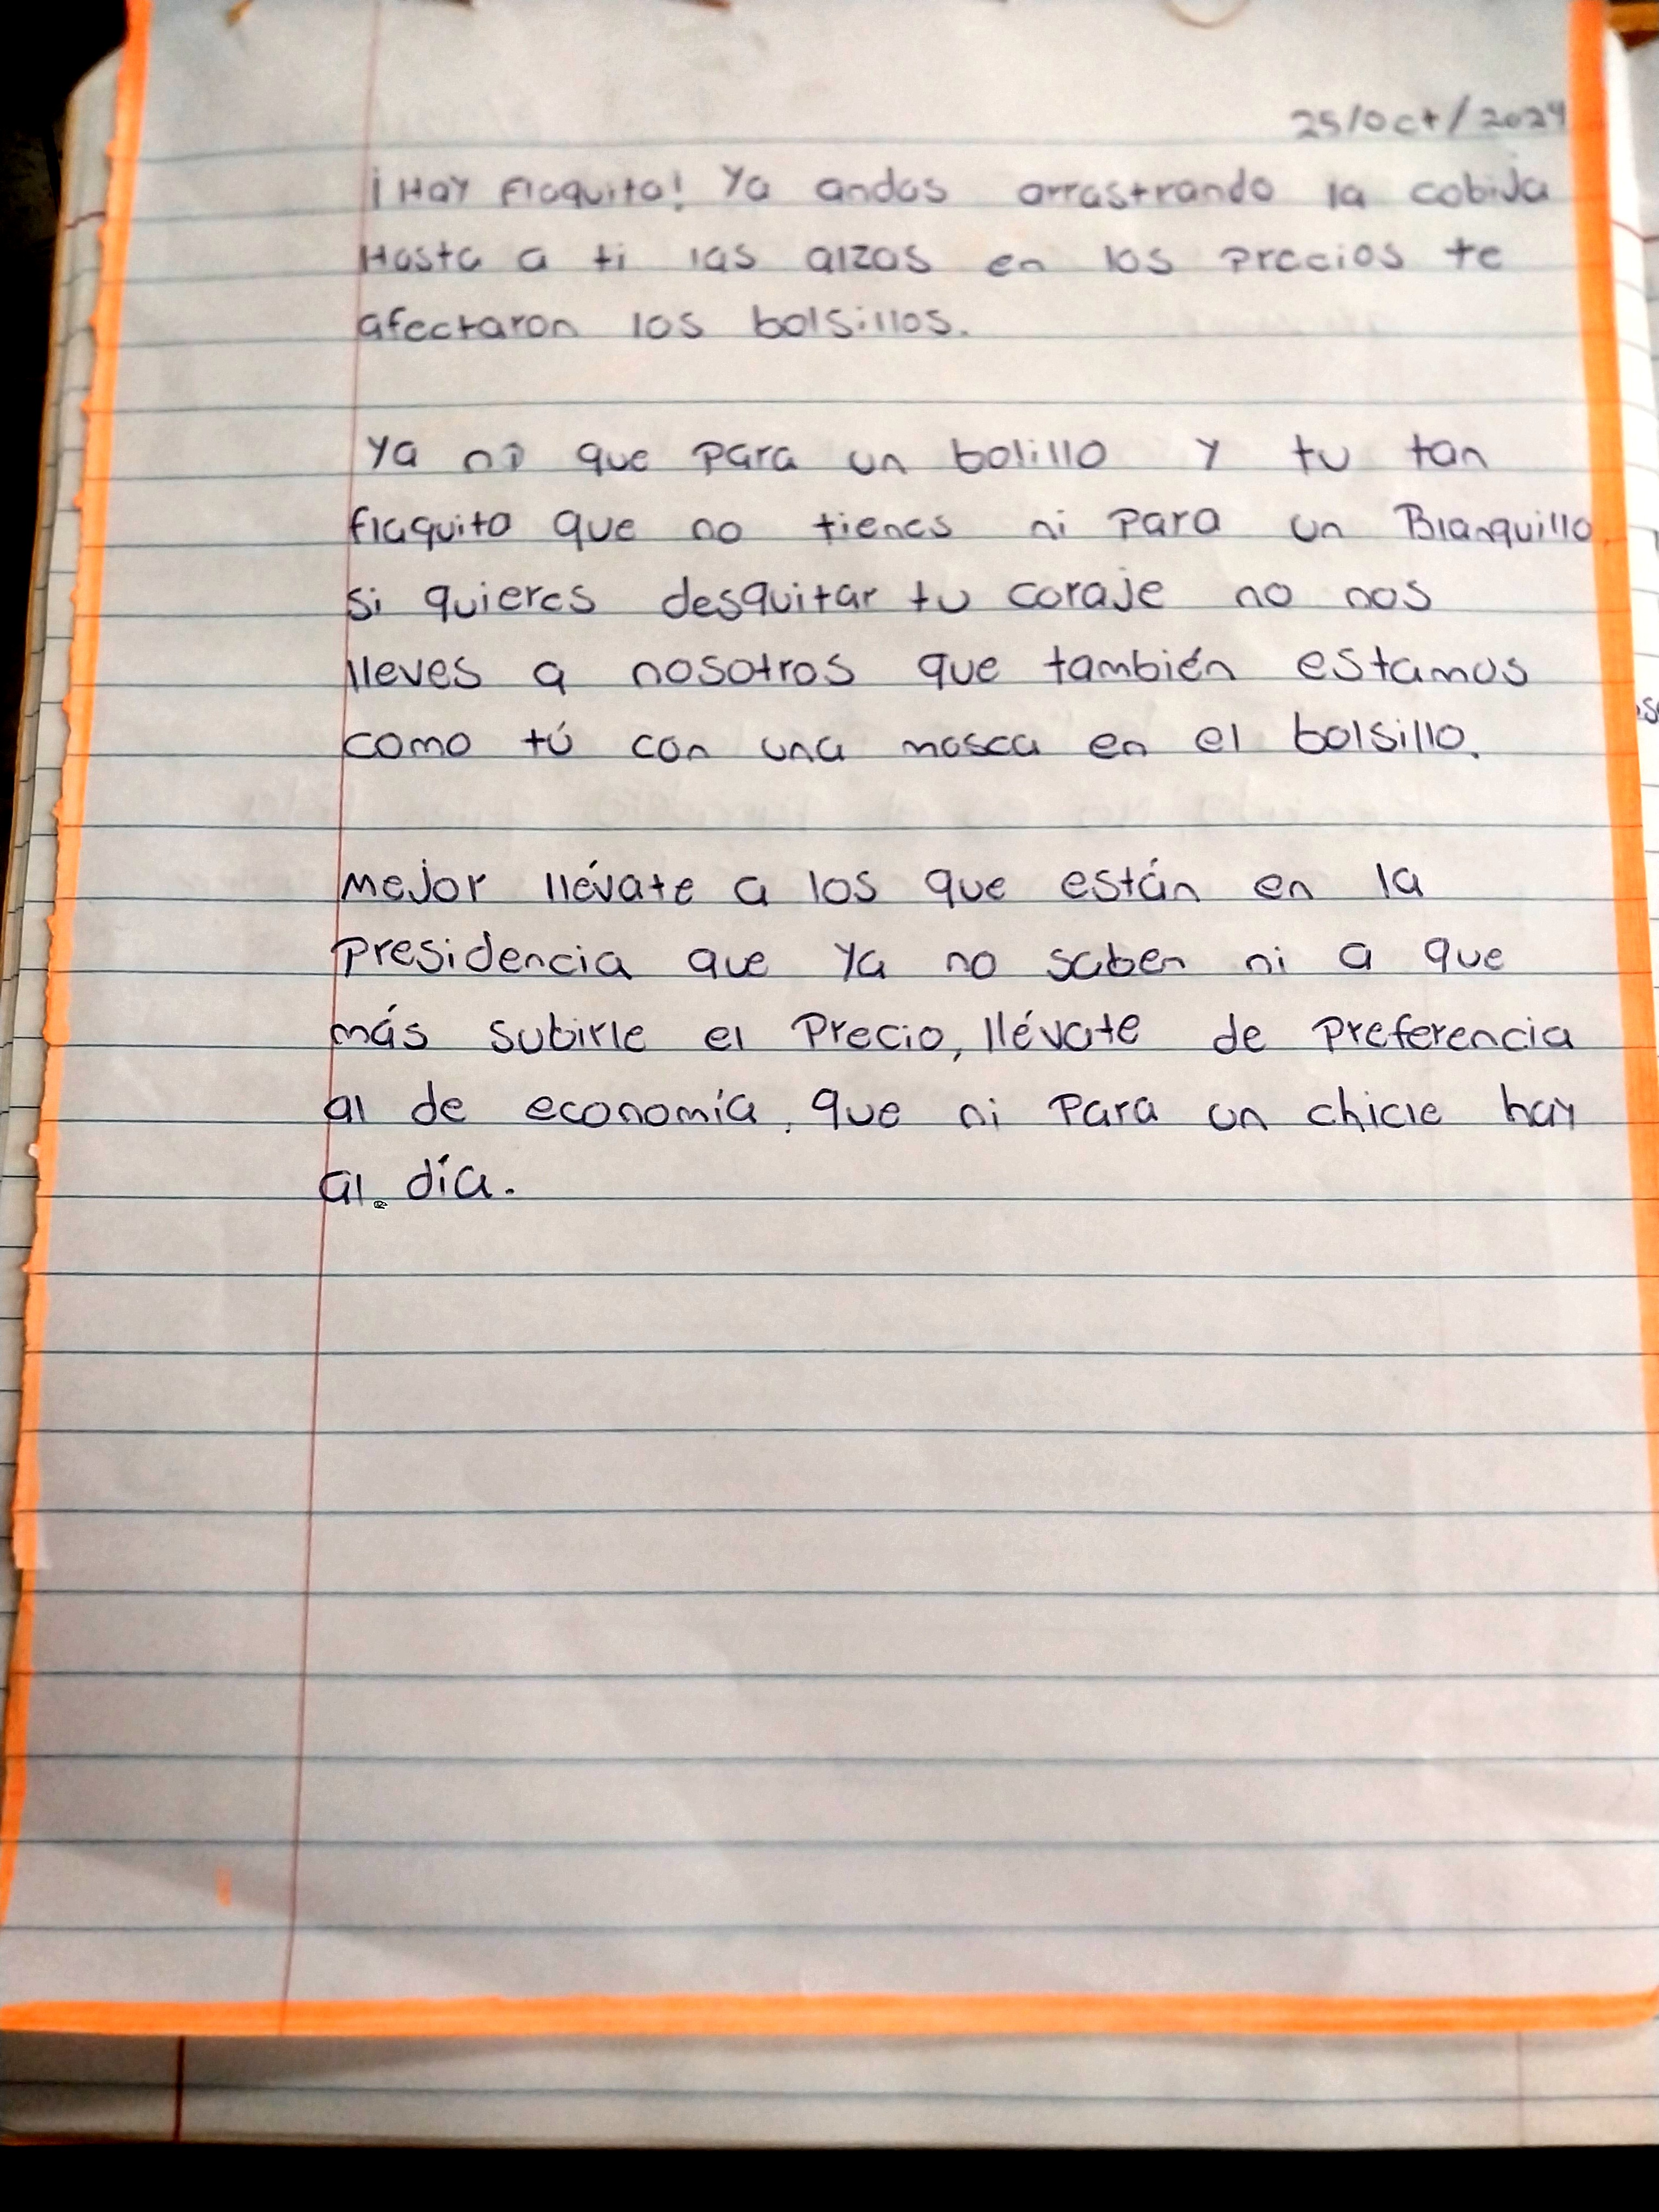 25/Oct/2024
¡Hay Flaquito! Ya andas arrastrando la cobija
Hasta a ti las alzas en los precios te
afectaron los bolsillos.
Ya ni que para un bolillo y tu tan
flaquito que no tienes ni para un Blanquillo
si quieres desquitar tu coraje no nos
lleves a nosotros que también estamos
como tú con una mosca en el bolsillo.
Mejor llévate a los que están en la
presidencia que ya no saben ni a que
más subirle el precio, llévate de preferencia
al de economía, que ni para un chicle hay
al día.